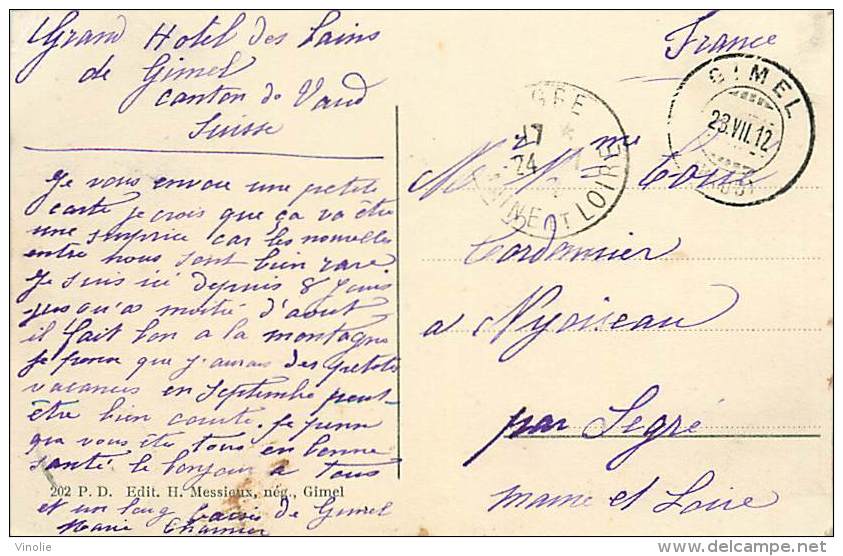 Grand Hotel des Bains
de Gimel
canton de Vaud
Suisse
Je vous envoie une petite
carte je crois que ça va être
une surprice car les nouvelles
entre nous sont bien rare.
Je suis ici depuis 8 jours
jusqu'a moitié d'aout
il fait bon a la montagne
je pense que j'aurais des petites
vacances en Septembre peut-
être bien courte. Je pense
que vous êtes tous en bonne
santé le bonjour a tous
202 P. D. Edit. H. Messieux, nég., Gimel
et un long baisé de Gimel
Marie Charrier
France
GIMEL
23.VII.12
GRE
17 *
24
MAINE ET LOIRE
M. et Mme
Cordonnier
a Nyoiseau
par Segré
Maine et Loire
Vinolie
http://www.delcampe.net